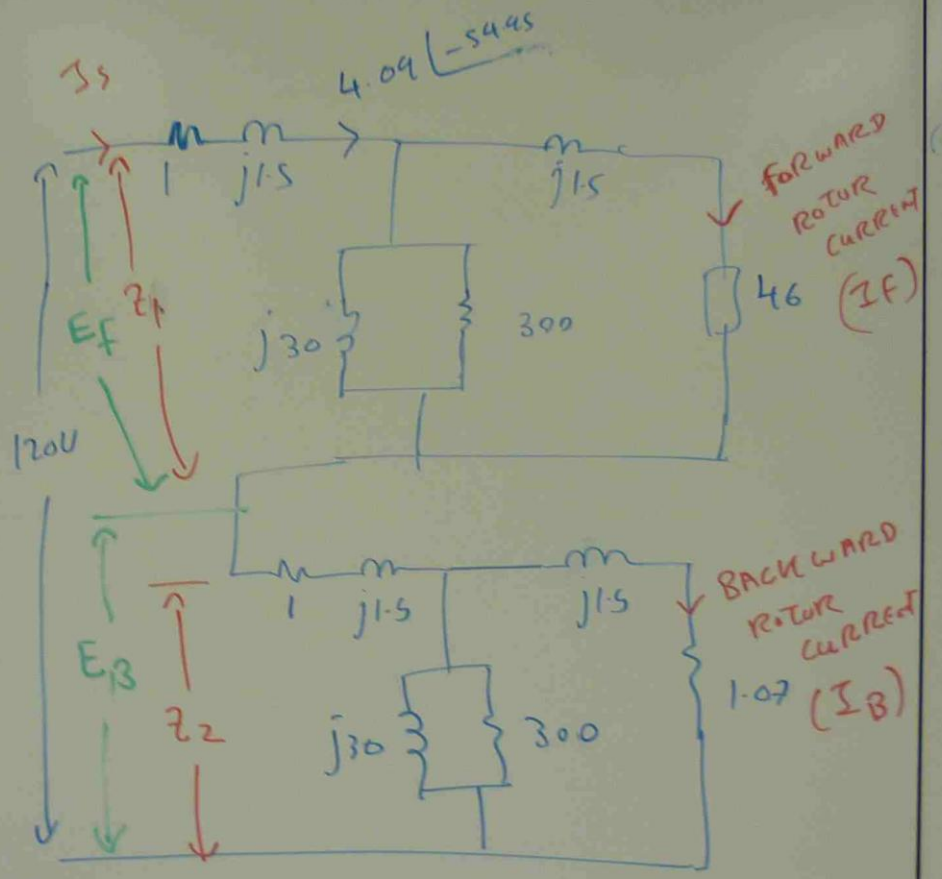 Is
4.09 ∠-54.45
1
j1.5
j1.5
FORWARD
ROTOR
CURRENT
(IF)
46
j30
300
Ef
Z1
120V
1
j1.5
j1.5
BACKWARD
ROTOR
CURRENT
(IB)
1.07
j30
300
EB
Z2